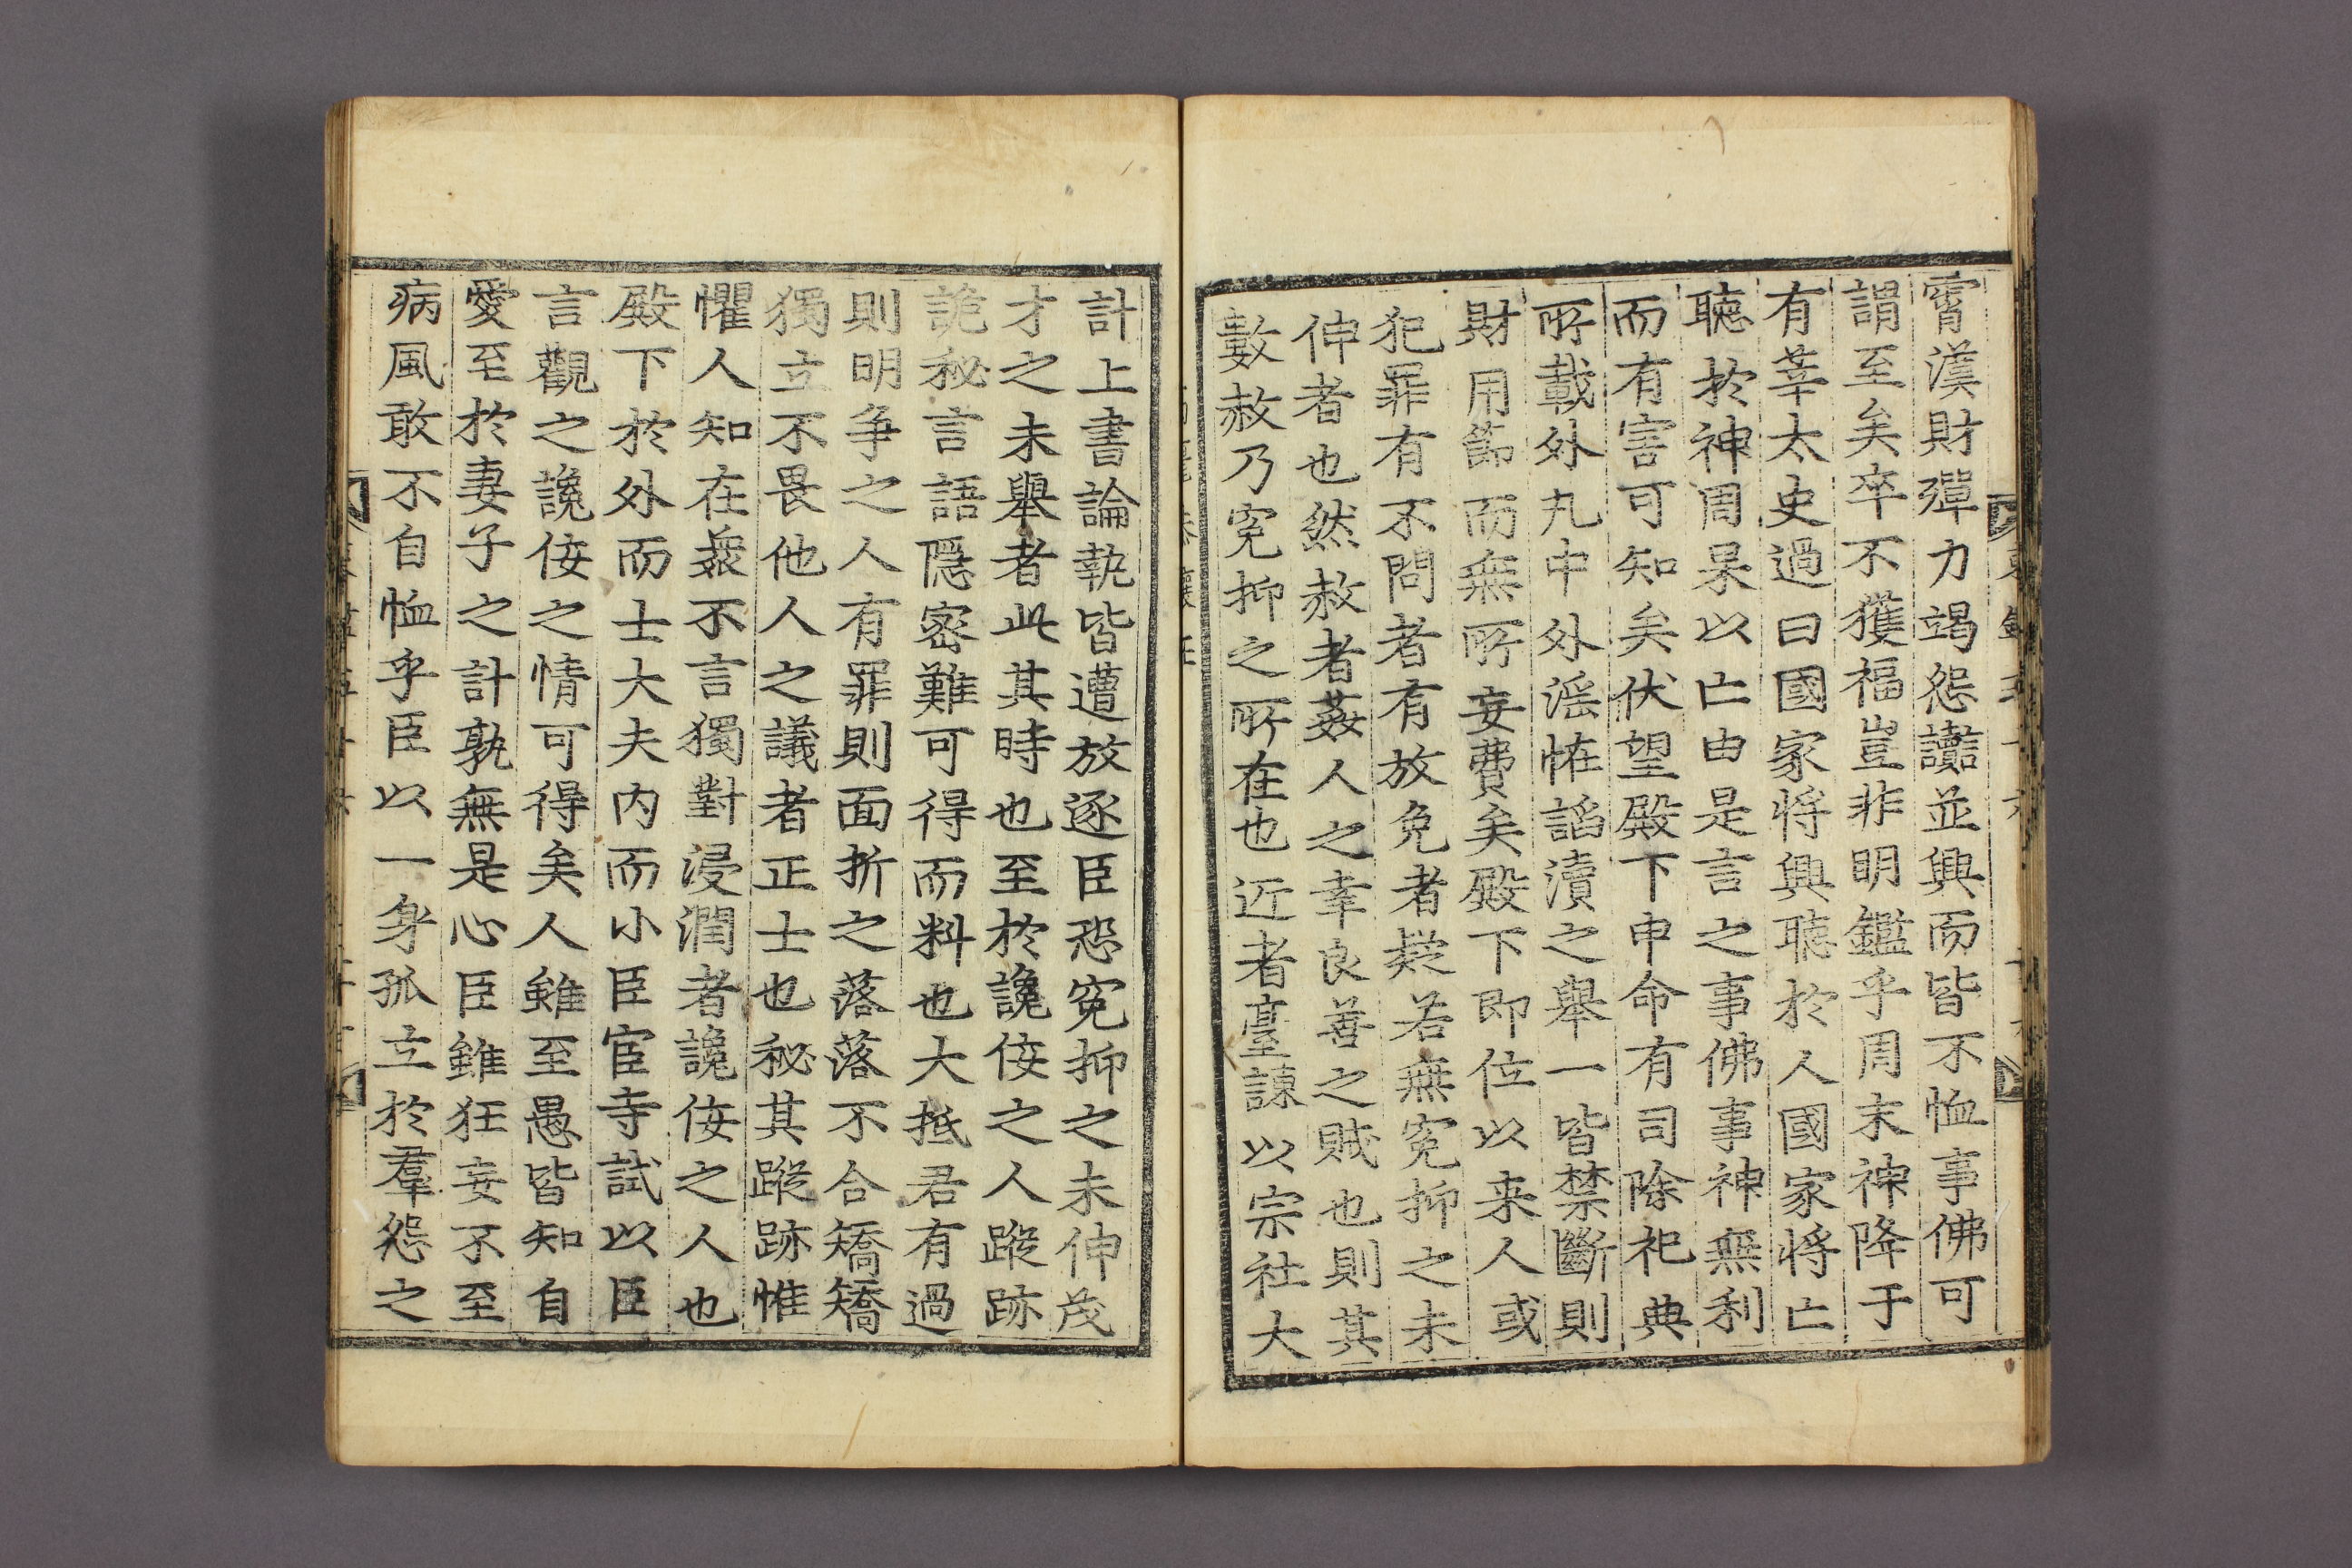 霄漢財殫力竭怨讟並興而皆不恤事佛可
謂至矣卒不獲福豈非明鑑乎周末神降于
有莘太史過曰國家將興聽於人國家將亡
聽於神周果以亡由是言之事佛事神無利
而有害可知矣伏望殿下申命有司除祀典
所載外凡中外滛恠謟瀆之舉一皆禁斷則
財用節而無所妄費矣殿下即位以来人或
犯罪有不問者有放免者疑若無寃抑之未
伸者也然赦者姦人之幸良善之賊也則其
數赦乃寃抑之所在也近者臺諫以宗社大
計上書論執皆遭放逐臣恐寃抑之未伸茂
才之未舉者此其時也至於讒侫之人蹤跡
詭秘言語隱密難可得而料也大抵君有過
則明争之人有罪則面折之落落不合矯矯
獨立不畏他人之議者正士也秘其蹤跡惟
懼人知在衆不言獨對浸潤者讒侫之人也
殿下於外而士大夫内而小臣宦寺試以臣
言觀之讒侫之情可得矣人雖至愚皆知自
愛至於妻子之計孰無是心臣雖狂妄不至
病風敢不自恤乎臣以一身孤立於羣怨之